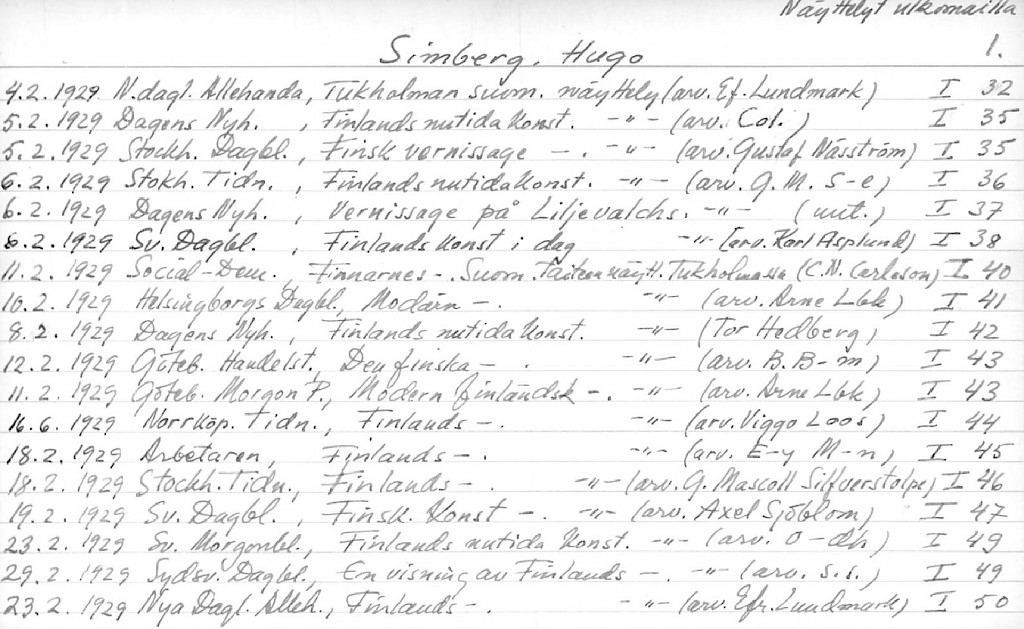 Näyttelyt ulkomailla
Simberg, Hugo 1.
4.2.1929 N.dagl. Allehanda, Tukholman suom. näyttely (arv. Ef. Lundmark) I 32
5.2.1929 Dagens Nyh. , Finlands nutida konst. -"- (arv. Col.) I 35
5.2.1929 Stockh. Dagbl., Finsk vernissage -. -"- (arv. Gustaf Näsström) I 35
6.2.1929 Stokh. Tidn. , Finlands nutida konst. -"- (arv. G.M. S-e) I 36
6.2.1929 Dagens Nyh. , Vernissage på Liljevalchs. -"- (uut.) I 37
6.2.1929 Sv. Dagbl. , Finlands konst i dag -"- (arv. Karl Asplund) I 38
11.2.1929 Social-Dem., Finnarnes-. Suom. Taiteen näytt. Tukholmassa (C.N. Carleson) I 40
10.2.1929 Helsingborgs Dagbl., Modärn -. -"- (arv. Arne Lbk) I 41
8.2.1929 Dagens Nyh. , Finlands nutida konst. -"- (Tor Hedberg) I 42
12.2.1929 Göteb. Handelst., Den finska - . -"- (arv. B.B-m) I 43
11.2.1929 Göteb. Morgon P., Modern finländsk -. -"- (arv. Arne Lbk) I 43
16.6.1929 Norrköp. Tidn., Finlands -. -"- (arv. Viggo Loos) I 44
18.2.1929 Arbetaren, Finlands - . -"- (arv. E-y M-n) I 45
18.2.1929 Stockh. Tidn., Finlands - . -"- (arv. G. Mascoll Silfverstolpe) I 46
19.2.1929 Sv. Dagbl. , Finsk. Konst -. -"- (arv. Axel Sjöblom) I 47
23.2.1929 Sv. Morgonbl., Finlands nutida konst. -"- (arv. O-dh) I 49
29.2.1929 Sydsv. Dagbl., En visning av Finlands - . -"- (arv. s.s.) I 49
23.2.1929 Nya Dagl. Alleh., Finlands - . -"- (arv. Efr. Lundmark) I 50